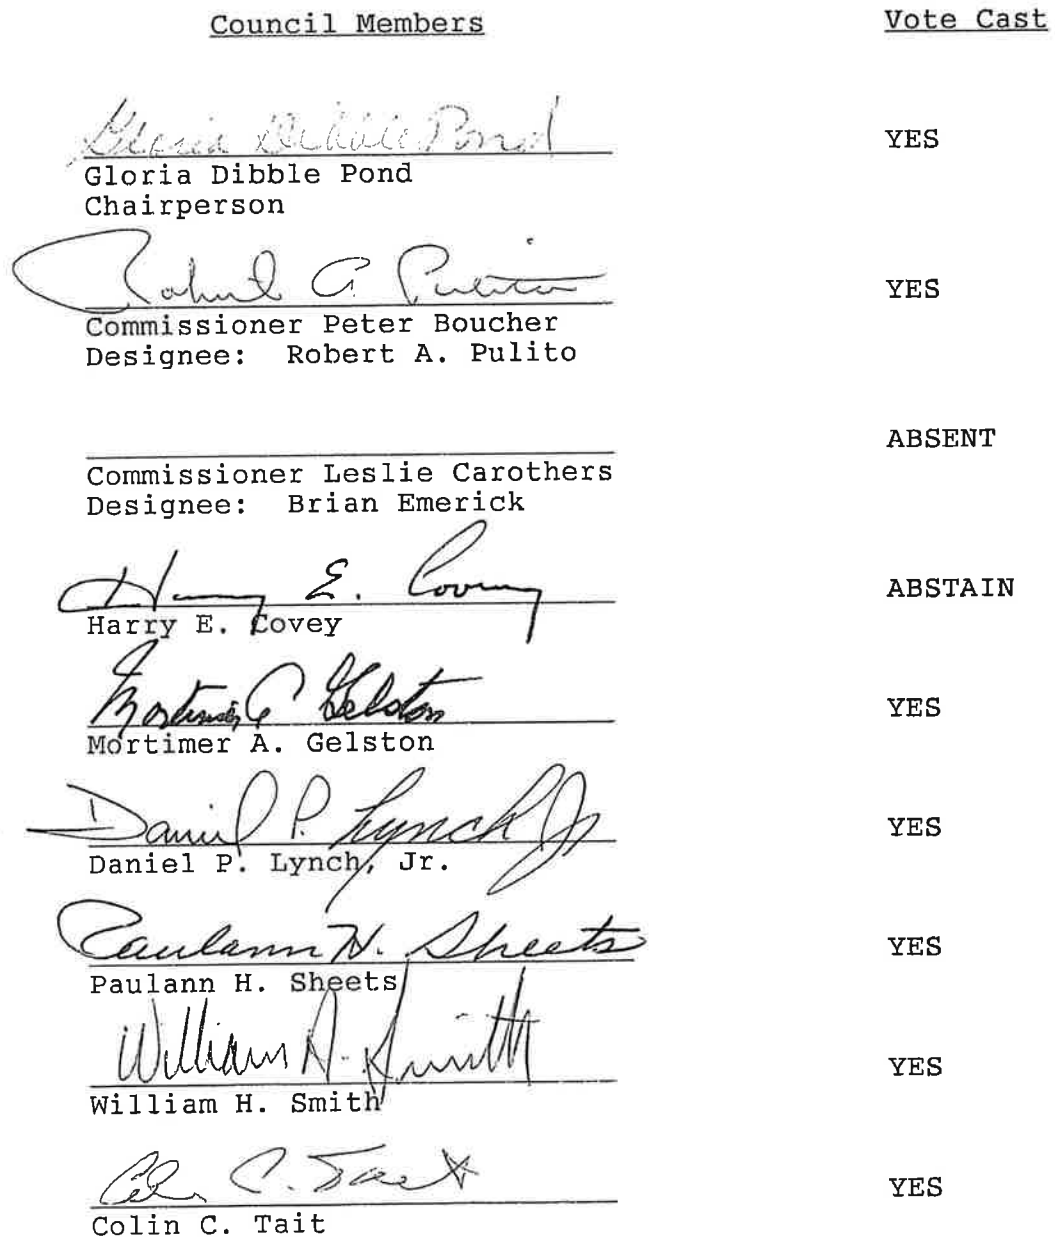 Council Members Vote Cast
Gloria Dibble Pond YES
Gloria Dibble Pond
Chairperson
Robert A. Pulito YES
Commissioner Peter Boucher
Designee: Robert A. Pulito
ABSENT
Commissioner Leslie Carothers
Designee: Brian Emerick
Harry E. Covey ABSTAIN
Harry E. Covey
Mortimer A. Gelston YES
Mortimer A. Gelston
Daniel P. Lynch Jr YES
Daniel P. Lynch, Jr.
Paulann H. Sheets YES
Paulann H. Sheets
William H. Smith YES
William H. Smith
Colin C. Tait YES
Colin C. Tait